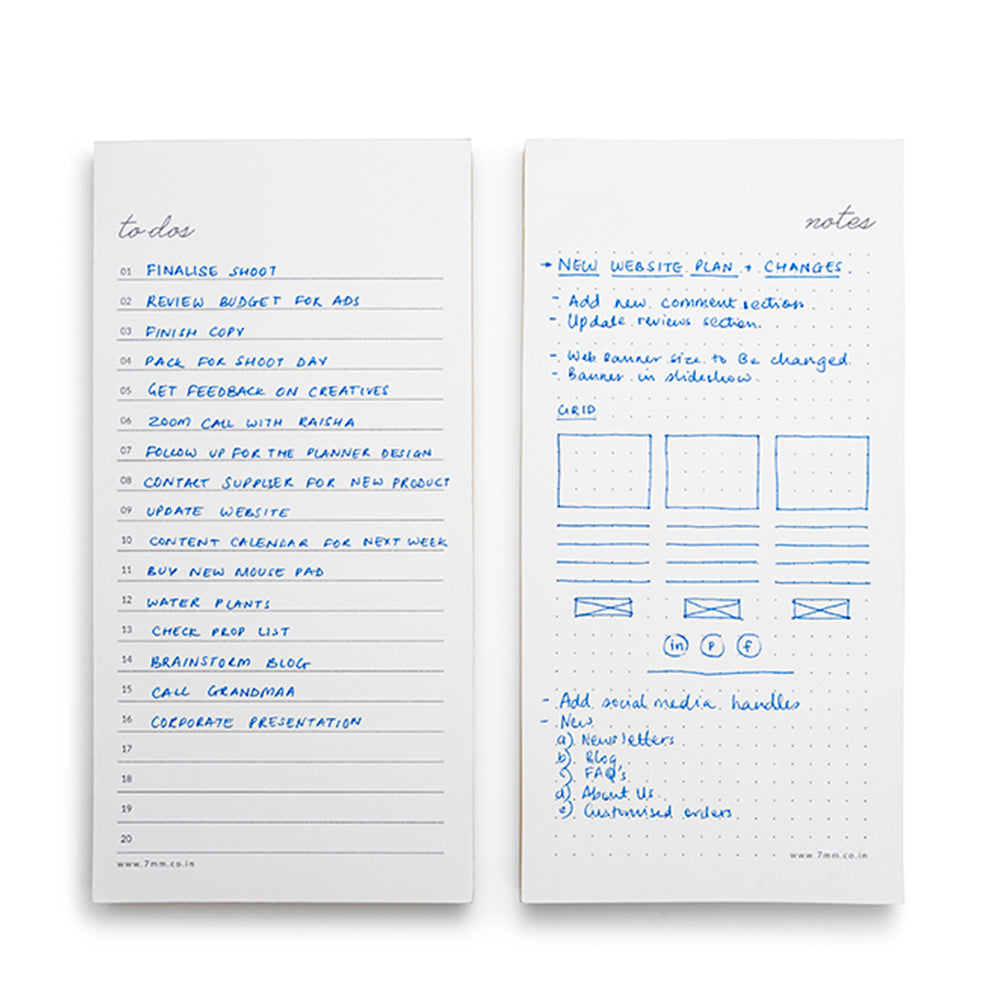 to dos
01 FINALISE SHOOT
02 REVIEW BUDGET FOR ADS
03 FINISH COPY
04 PACK FOR SHOOT DAY
05 GET FEEDBACK ON CREATIVES
06 ZOOM CALL WITH RAISHA
07 FOLLOW UP FOR THE PLANNER DESIGN
08 CONTACT SUPPLIER FOR NEW PRODUCT
09 UPDATE WEBSITE
10 CONTENT CALENDAR FOR NEXT WEEK
11 BUY NEW MOUSE PAD
12 WATER PLANTS
13 CHECK PROP LIST
14 BRAINSTORM BLOG
15 CALL GRANDMAA
16 CORPORATE PRESENTATION
17
18
19
20
www.7mm.co.in
notes
→ NEW WEBSITE PLAN + CHANGES
- Add new comment section
- Update reviews section
- Web Banner size to Be changed
- Banner in slideshow
GRID
in P f
- Add social media handles
- New
a) Newsletters
b) Blog
c) FAQ's
d) About Us
e) Customised orders
www.7mm.co.in